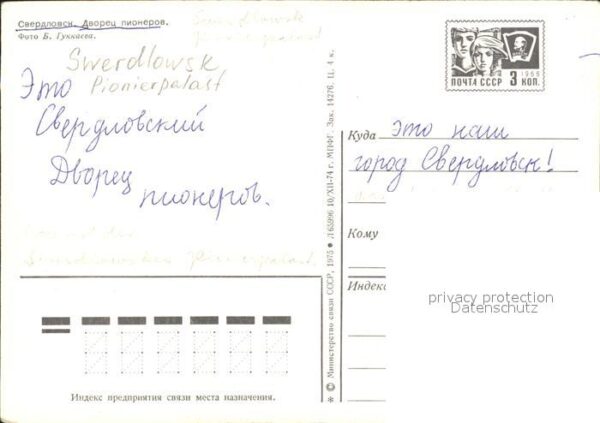 Свердловск. Дворец пионеров.
Фото Б. Гуккаева.
Swerdlowsk
Pionierpalast
Это
Свердловский
Дворец
пионеров.
ПОЧТА СССР 3 КОП.
1966
Куда это наш
город Свердловск!
Кому
Индекс
privacy protection
Datenschutz
© Министерство связи СССР, 1975 ● Л 65996 10/XII-74 г. МПФГ. Зак. 14276. Ц. 4 к.
Индекс предприятия связи места назначения.